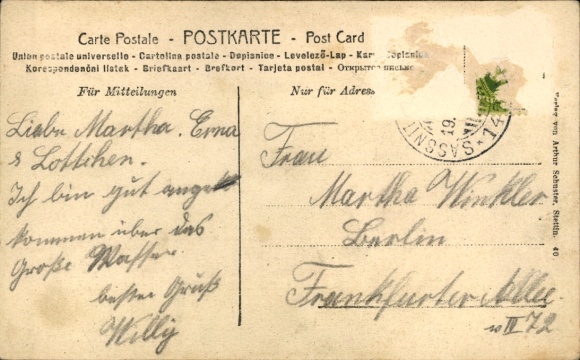 Carte Postale - POSTKARTE - Post Card
Union postale universelle - Cartolina postale - Dopisnice - Levelező-Lap - Kar
Korespondenční listek - Briefkaart - Brefkort - Tarjeta postal - Открытое письмо
Für Mitteilungen
Nur für Adres
Liebe Martha. Erna
& Lottchen.
Ich bin gut ange
kommen über das
Große Wasser
bester Gruß
Willy
SASSNIT
19.
14
Frau
Martha Winkler
Berlin
Frankfurter Allee
III 72
Verlag von Arthur Schuster, Stettin. 40